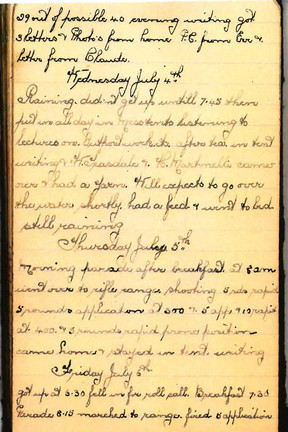 29 out of possible 40 evening writing got
3 letters & Photo's from home P.C. from Eve &
letter from Claude.
Wednesday July 4th
Raining. didn't get up untill 7.45 then
put in all day in mess tents listening to
lectures on. after tea in tent
writing & W. Teasdale & H. came
over & had a yarn. Will expects to go over
the water shortly. had a feed & went to bed
still raining
Thursday July 5th
Morning parade after breakfast at 8am
went over to rifle range shooting 5 rds rapid
5 rounds application at 300 & 5 app & 10 rapid
at 400. & 5 rounds rapid prone position
came home & stayed in tent writing
Friday July 6th
got up at 5.30 fell in for roll call. Breakfast 7.30
Parade 8.15 marched to range. fired 5 application